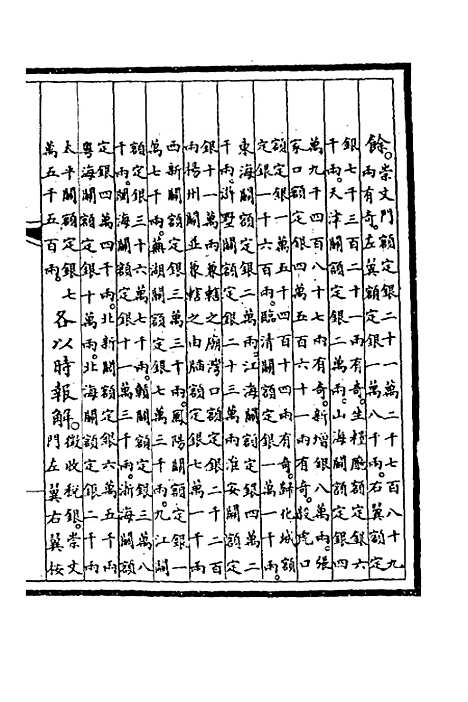 餘。崇文門額定銀二十一萬二千七百八十九
兩有奇。左翼額定銀一萬八千兩。右翼額定
銀七千三百二十一兩有奇。坐糧廳額定銀六
千兩。天津關額定銀二萬兩。山海關額定銀四
萬九千四百八十七兩有奇。新增銀八萬兩。張
家口額定銀一萬五百六十一兩有奇。殺虎口
額定銀一萬五千四百十四兩有奇。歸化城額
定銀一千六百兩。臨清關額定銀一萬一千兩。
東海關額定銀二萬兩。江海關額定銀四萬二
千兩。滸墅關額定銀二十三萬兩。淮安關額定
銀十一萬兩。兼轄之廟灣口額定銀二千二百
兩。揚州關並兼轄之由牐額定銀七萬一千兩
西新關額定銀三萬三千兩。鳳陽關額定銀一
萬七千兩。蕪湖關額定銀七萬三千兩。九江關
額定銀三十六萬七千兩。贛關額定銀三萬八
千兩。閩海關額定銀十一萬三千兩。浙海關額
定銀四萬四千兩。北新關額定銀六萬五千兩
粵海關額定銀十萬兩。北海關額定銀二千兩
太平關額定銀七
萬五千五百兩。
各以時報解。徵收稅銀。崇文
門左翼右翼按